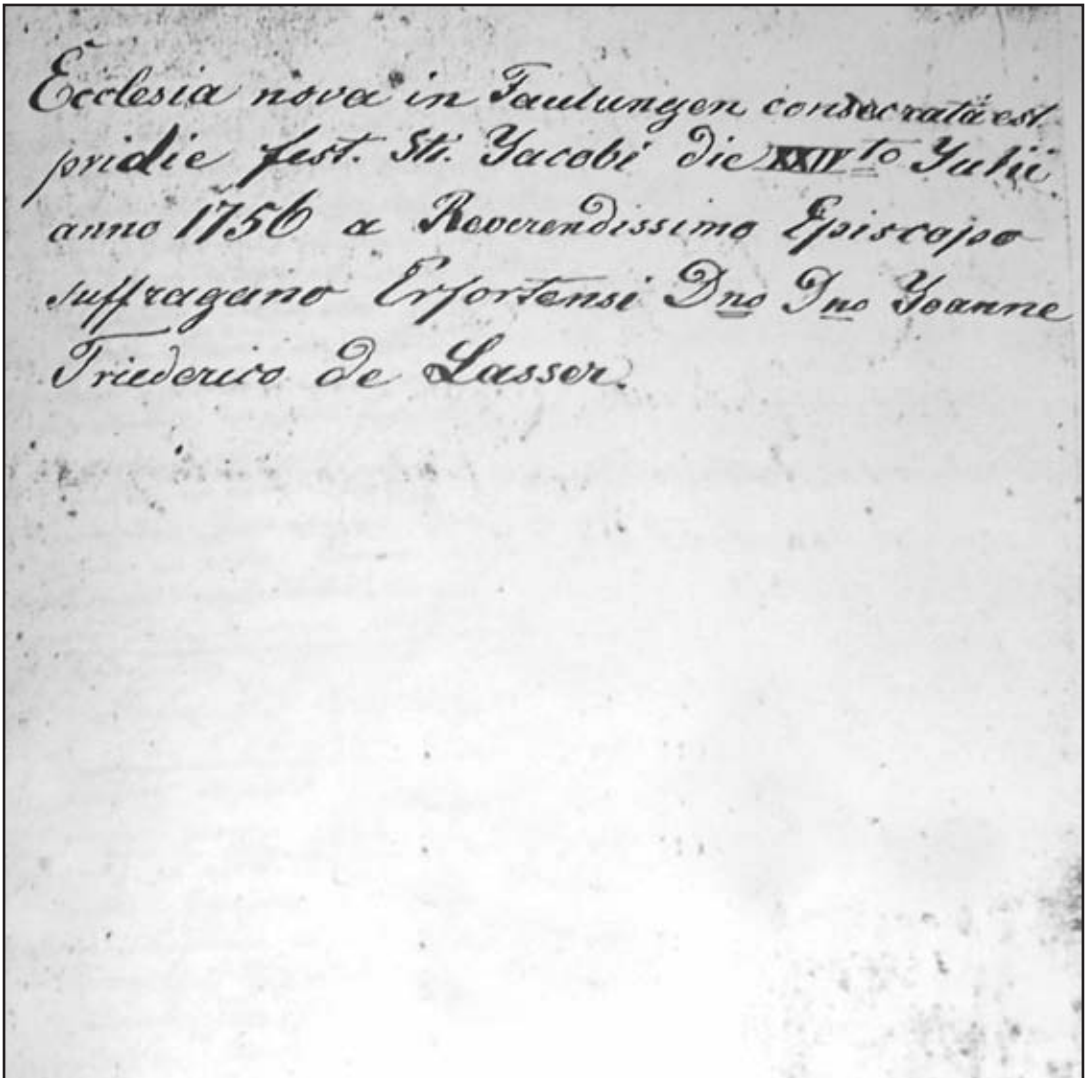 Ecclesia nova in Faulungen consecrata est
pridie fest. Sti. Yacobi die XXIV to Yulii
anno 1756 a Reverendissimo Episcopo
suffraganeo Erfortensi Dno Dno Yoanne
Friederico de Lasser.